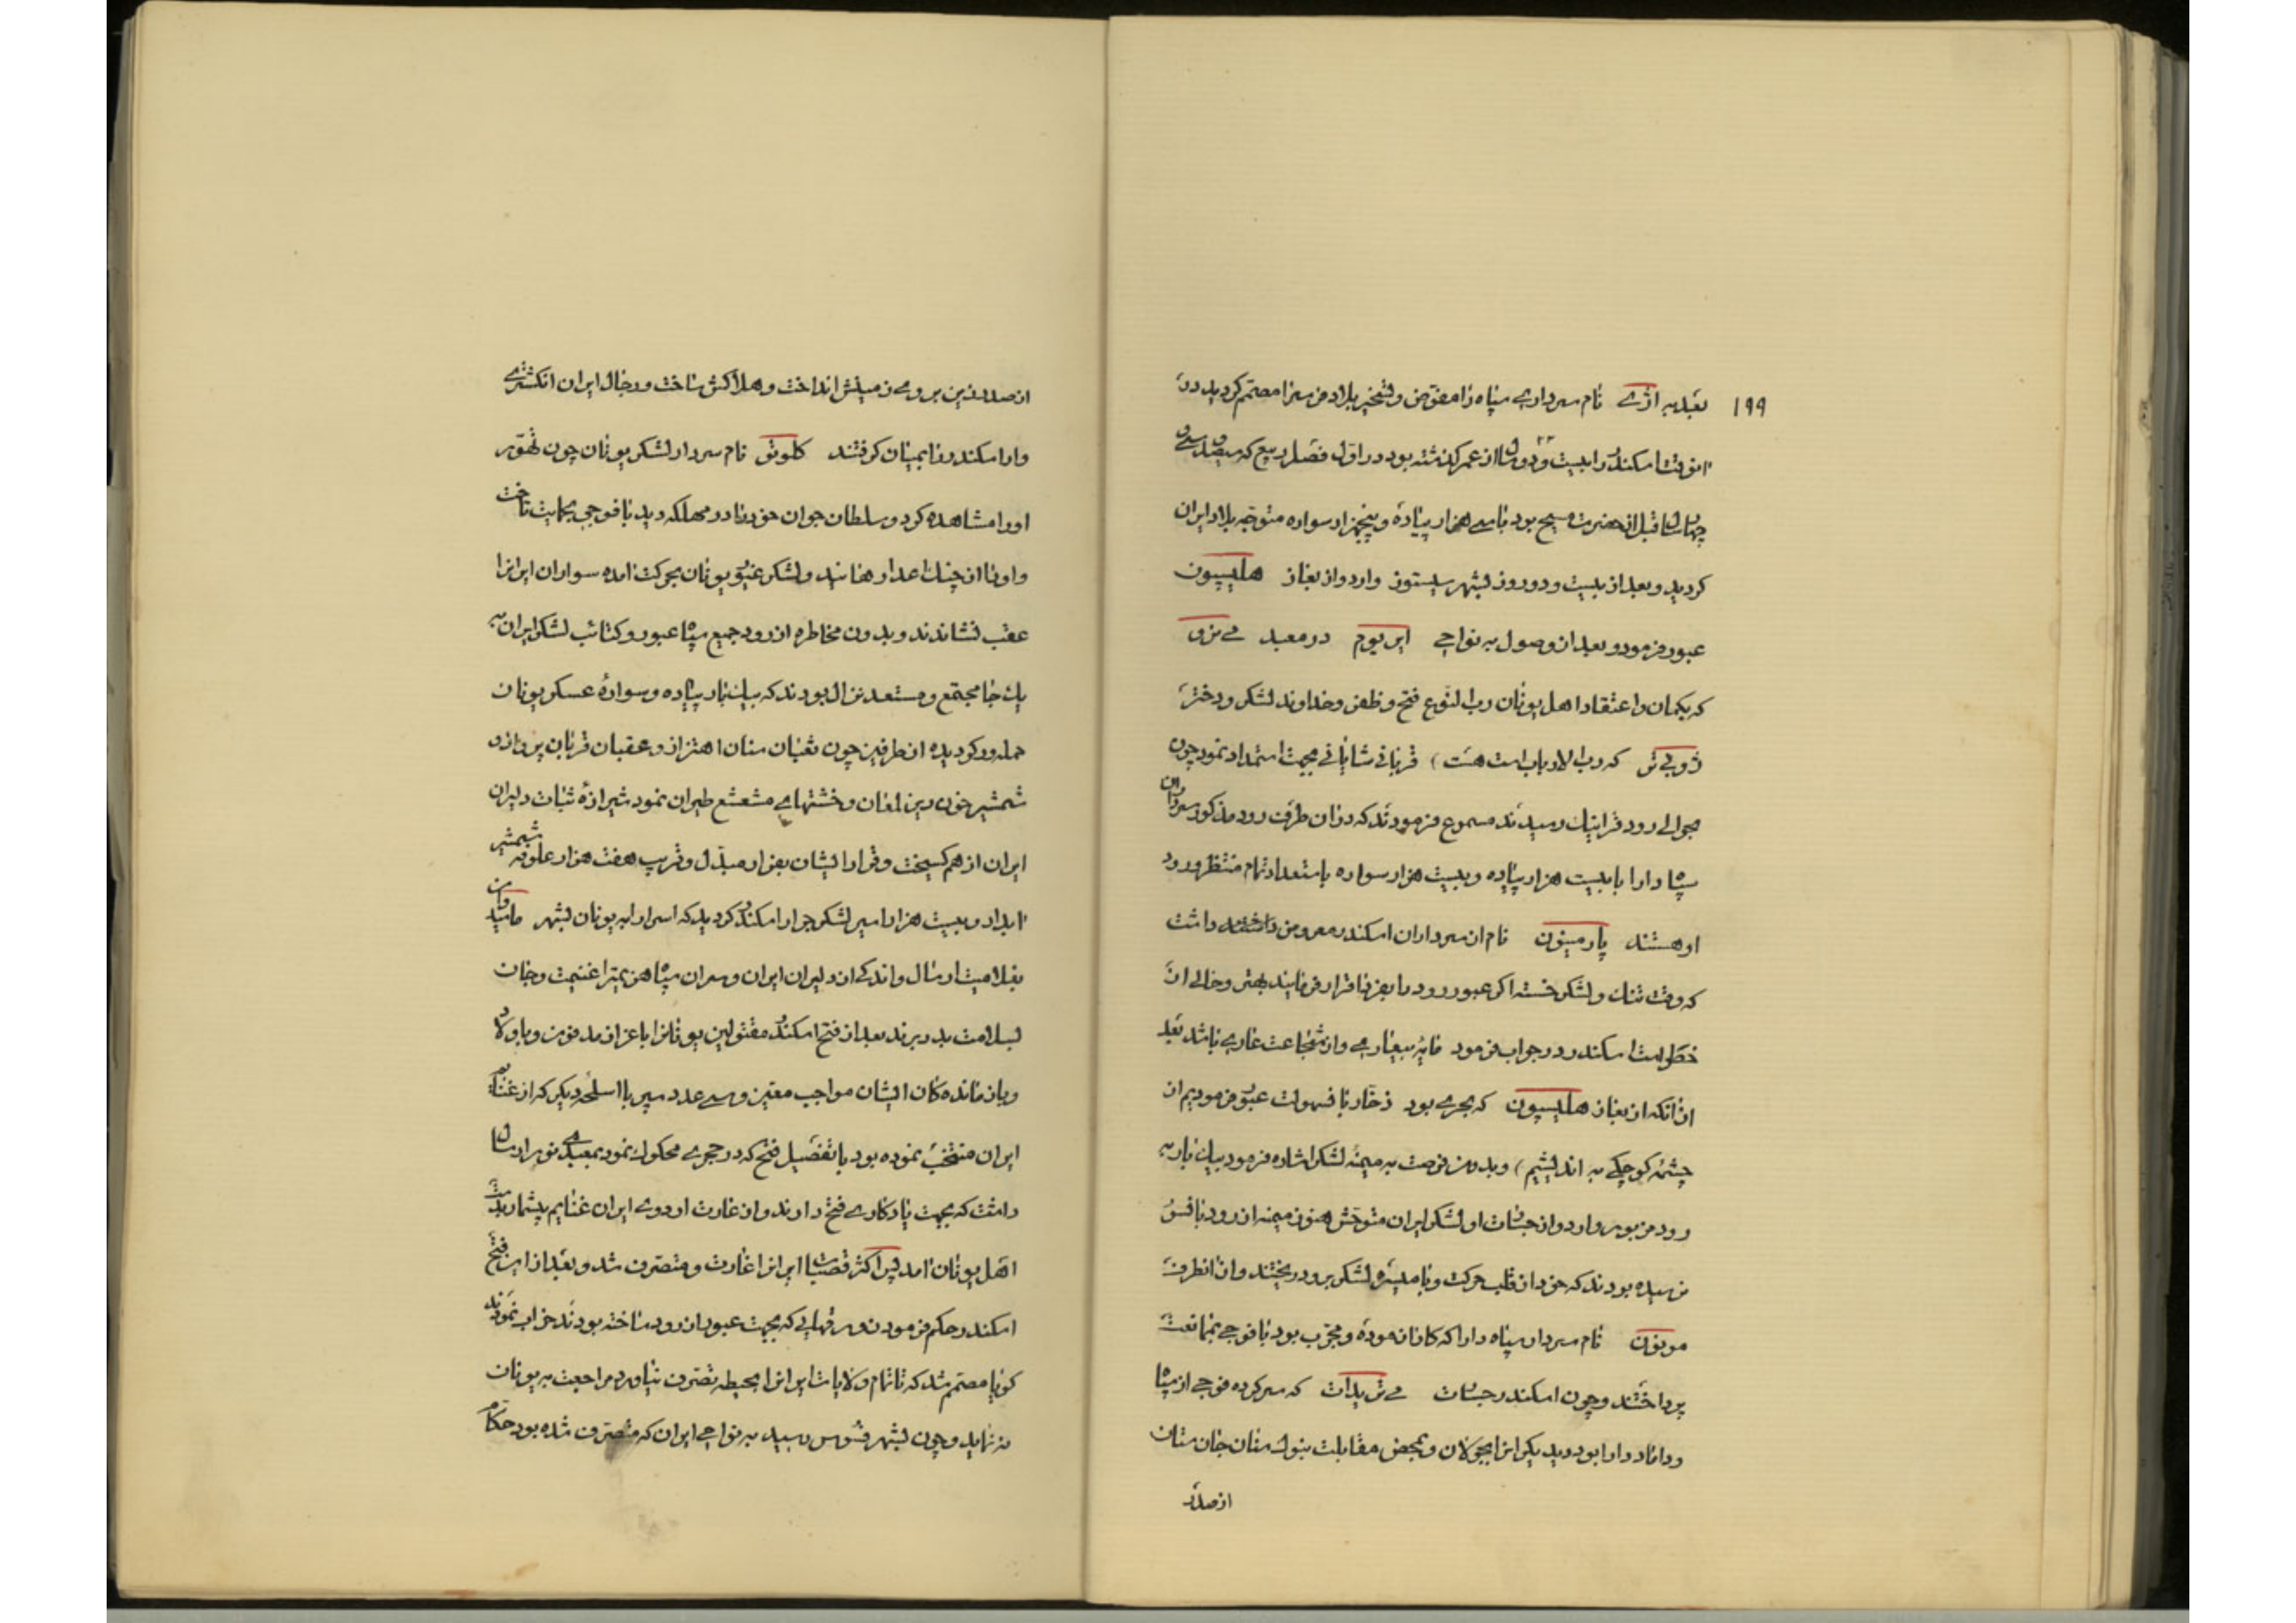 ۱۹۹
بعد به اژی نام سرداری سپاه را مفوض و تسخیر بلاد فرس را مصمم کردید در
انوقت اسکندر را بیست و دو سال از عمر کذشته بود در اول فصل ربیع که سیصد و سی و
چهار سال قبل از حضرت مسیح بود با سی هزار پیاده و پنجهزار سواره متوجه بلاد ایران
کردید و بعد از بیست و دو روز بشهر سیستوز وارد و از بغاز هلیسپون
عبور فرمود و بعد از وصول به نواحی ایریوم در معبد می نرو
که بکمان و اعتقاد اهل یونان رب النوع فتح و ظفر و خداوند لشکر و دختر
ژوپی تر که رب الارباب است هست) قربانی شایانی بجهت استمداد نمود چون
بحوالی رود قرانیک رسیدند مسموع فرمودند که در ان طرف رود مذکور سرداران
سپاه دارا با بیست هزار پیاده و بیست هزار سواره باستعداد تمام منتظر ورود
او هستند پارمنیون نام از سرداران اسکندر معروض داشت
که وقت تنک و لشکر خسته اکر عبور رود را بفردا قرار فرمایند بهتر و خالی از
خطر است اسکندر در جواب فرمود مایه بیغاری و از شجاعت عاری باشد بعد
از انکه از بغاز هلیسپون که بحری بود ذخار با سهولت عبور فرمودیم از
چشمه کوچکی به اندیشیم) و بدون فرصت به میمنه لشکر اشاره فرمود بیک بار به
رود مزبور وارد و از جسارت او لشکر ایران متوحش هنوز میمنه از رود باقسو
نرسیده بودند که خود از قلب حرکت و با میسره لشکر برود ریختند و از انطرف
مونون نام سردار سپاه دارا که کار ازموده و مجرب بود با فوجی بممانعت
پرداختند و چون اسکندر جسارت می تریدات که سرکرده فوجی از سپاه
و داماد دارا بود دید یکران را بجولان و بمحض مقابلت بنوک سنان جان ستان
از صدر
از صدر زین بروی زمینش انداخت و هلاکش ساخت و رجال ایران انکشتری
وار اسکندر را بمیان کرفتند کلوتو نام سردار لشکر یونان چون تهور
او را مشاهده کرد و سلطان جوان خود را در مهلکه دید با فوجی بحمایت تاخت
و او را از چنک اعدا رهانید و لشکر غیور یونان بحرکت امده سواران ایران را
عقب نشاندند و بدون مخاطره از رود جمیع سپاه عبور و کتائب لشکر ایران به
یک جا مجتمع و مستعد نزال بودند که بیک بار پیاده و سواره عسکر یونان
حمله ور کردیده از طرفین چون ثعبان سنان اهتزاز و عقبان قربان پرواز و
شمشیر خون ریز لمعان و خشتهای مشعشع طیران نمود شیرازه ثبات دلیران
ایران از هم کسیخت و قرار ایشان بفرار مبدل و قریب هفت هزار علوفه شمشیر
ابدار و بیست هزار اسیر لشکر جرار اسکندر کردید که اسرا را به یونان بشهر
بغلامیت ارسال و اندکی از دلیران ایران و سران سپاه هزیمت را غنیمت و جان
بسلامت بدر بردند بعد از فتح اسکندر مقتولین یونان را با عزاز مدفون و باولاد
و بازماندکان ایشان مواجب معین و سی عدد سپر با اسلحه دیکر که از غنائم
ایران منتخب نموده بود با تفضیل فتح که در حجری محکوک نمود بمعبد می نروا رسال
داشت که بجهت یادکاری فتح دارند و از غارت اردوی ایران غنایم بیشمار بدست
اهل یونان امد پس اکثر قصبات ایران را غارت و متصرف شد و بعد از این فتح
اسکندر حکم فرمود زورقهایی که بجهت عبور از رود ساخته بودند خراب نمودند
کویا مصمم شد که تا تمام ولایات ایران را بحیطه تصرف نیاورد مراجعت به یونان
ننماید و چون بشهر فسوس رسید به نواحی ایران که متصرف شده بود حکام